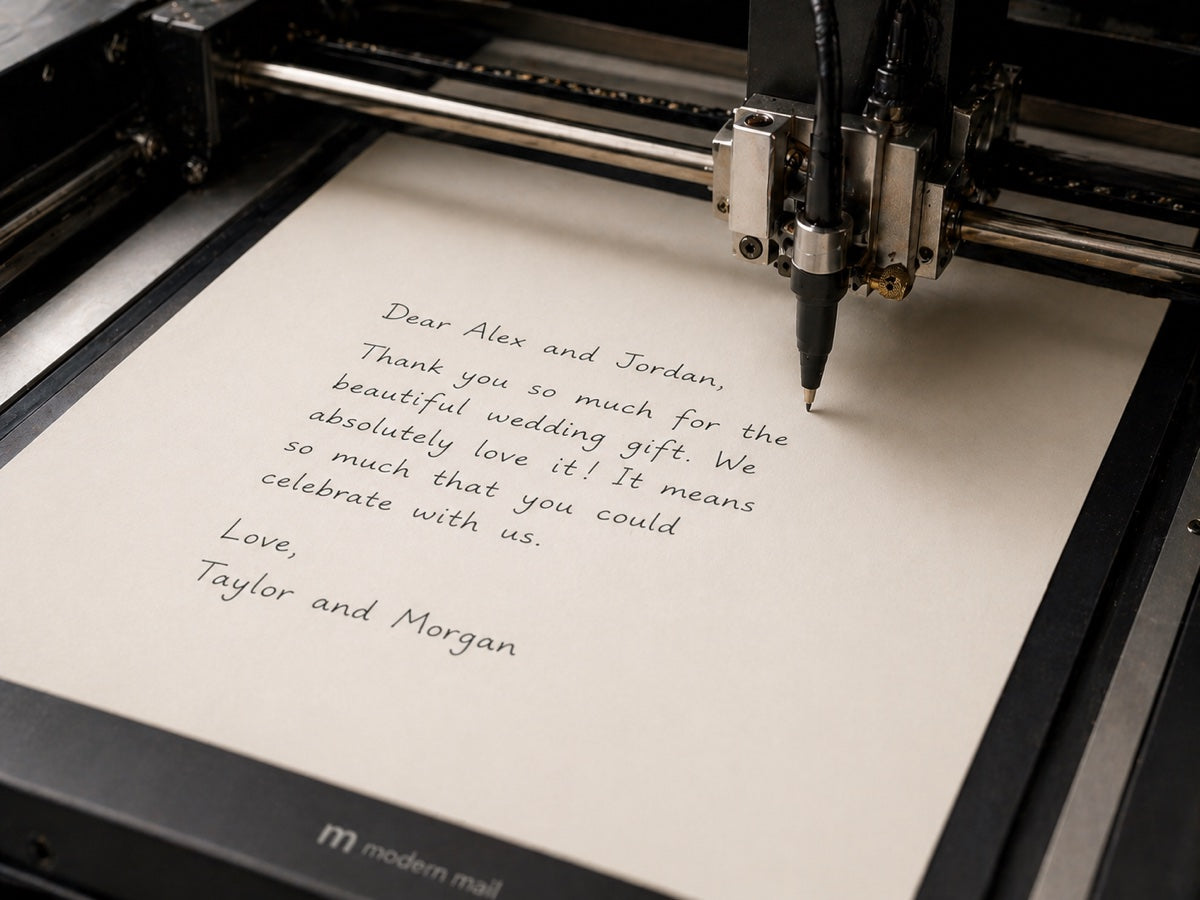 Dear Alex and Jordan,
Thank you so much for the
beautiful wedding gift. We
absolutely love it! It means
so much that you could
celebrate with us.
Love,
Taylor and Morgan
m modern mail